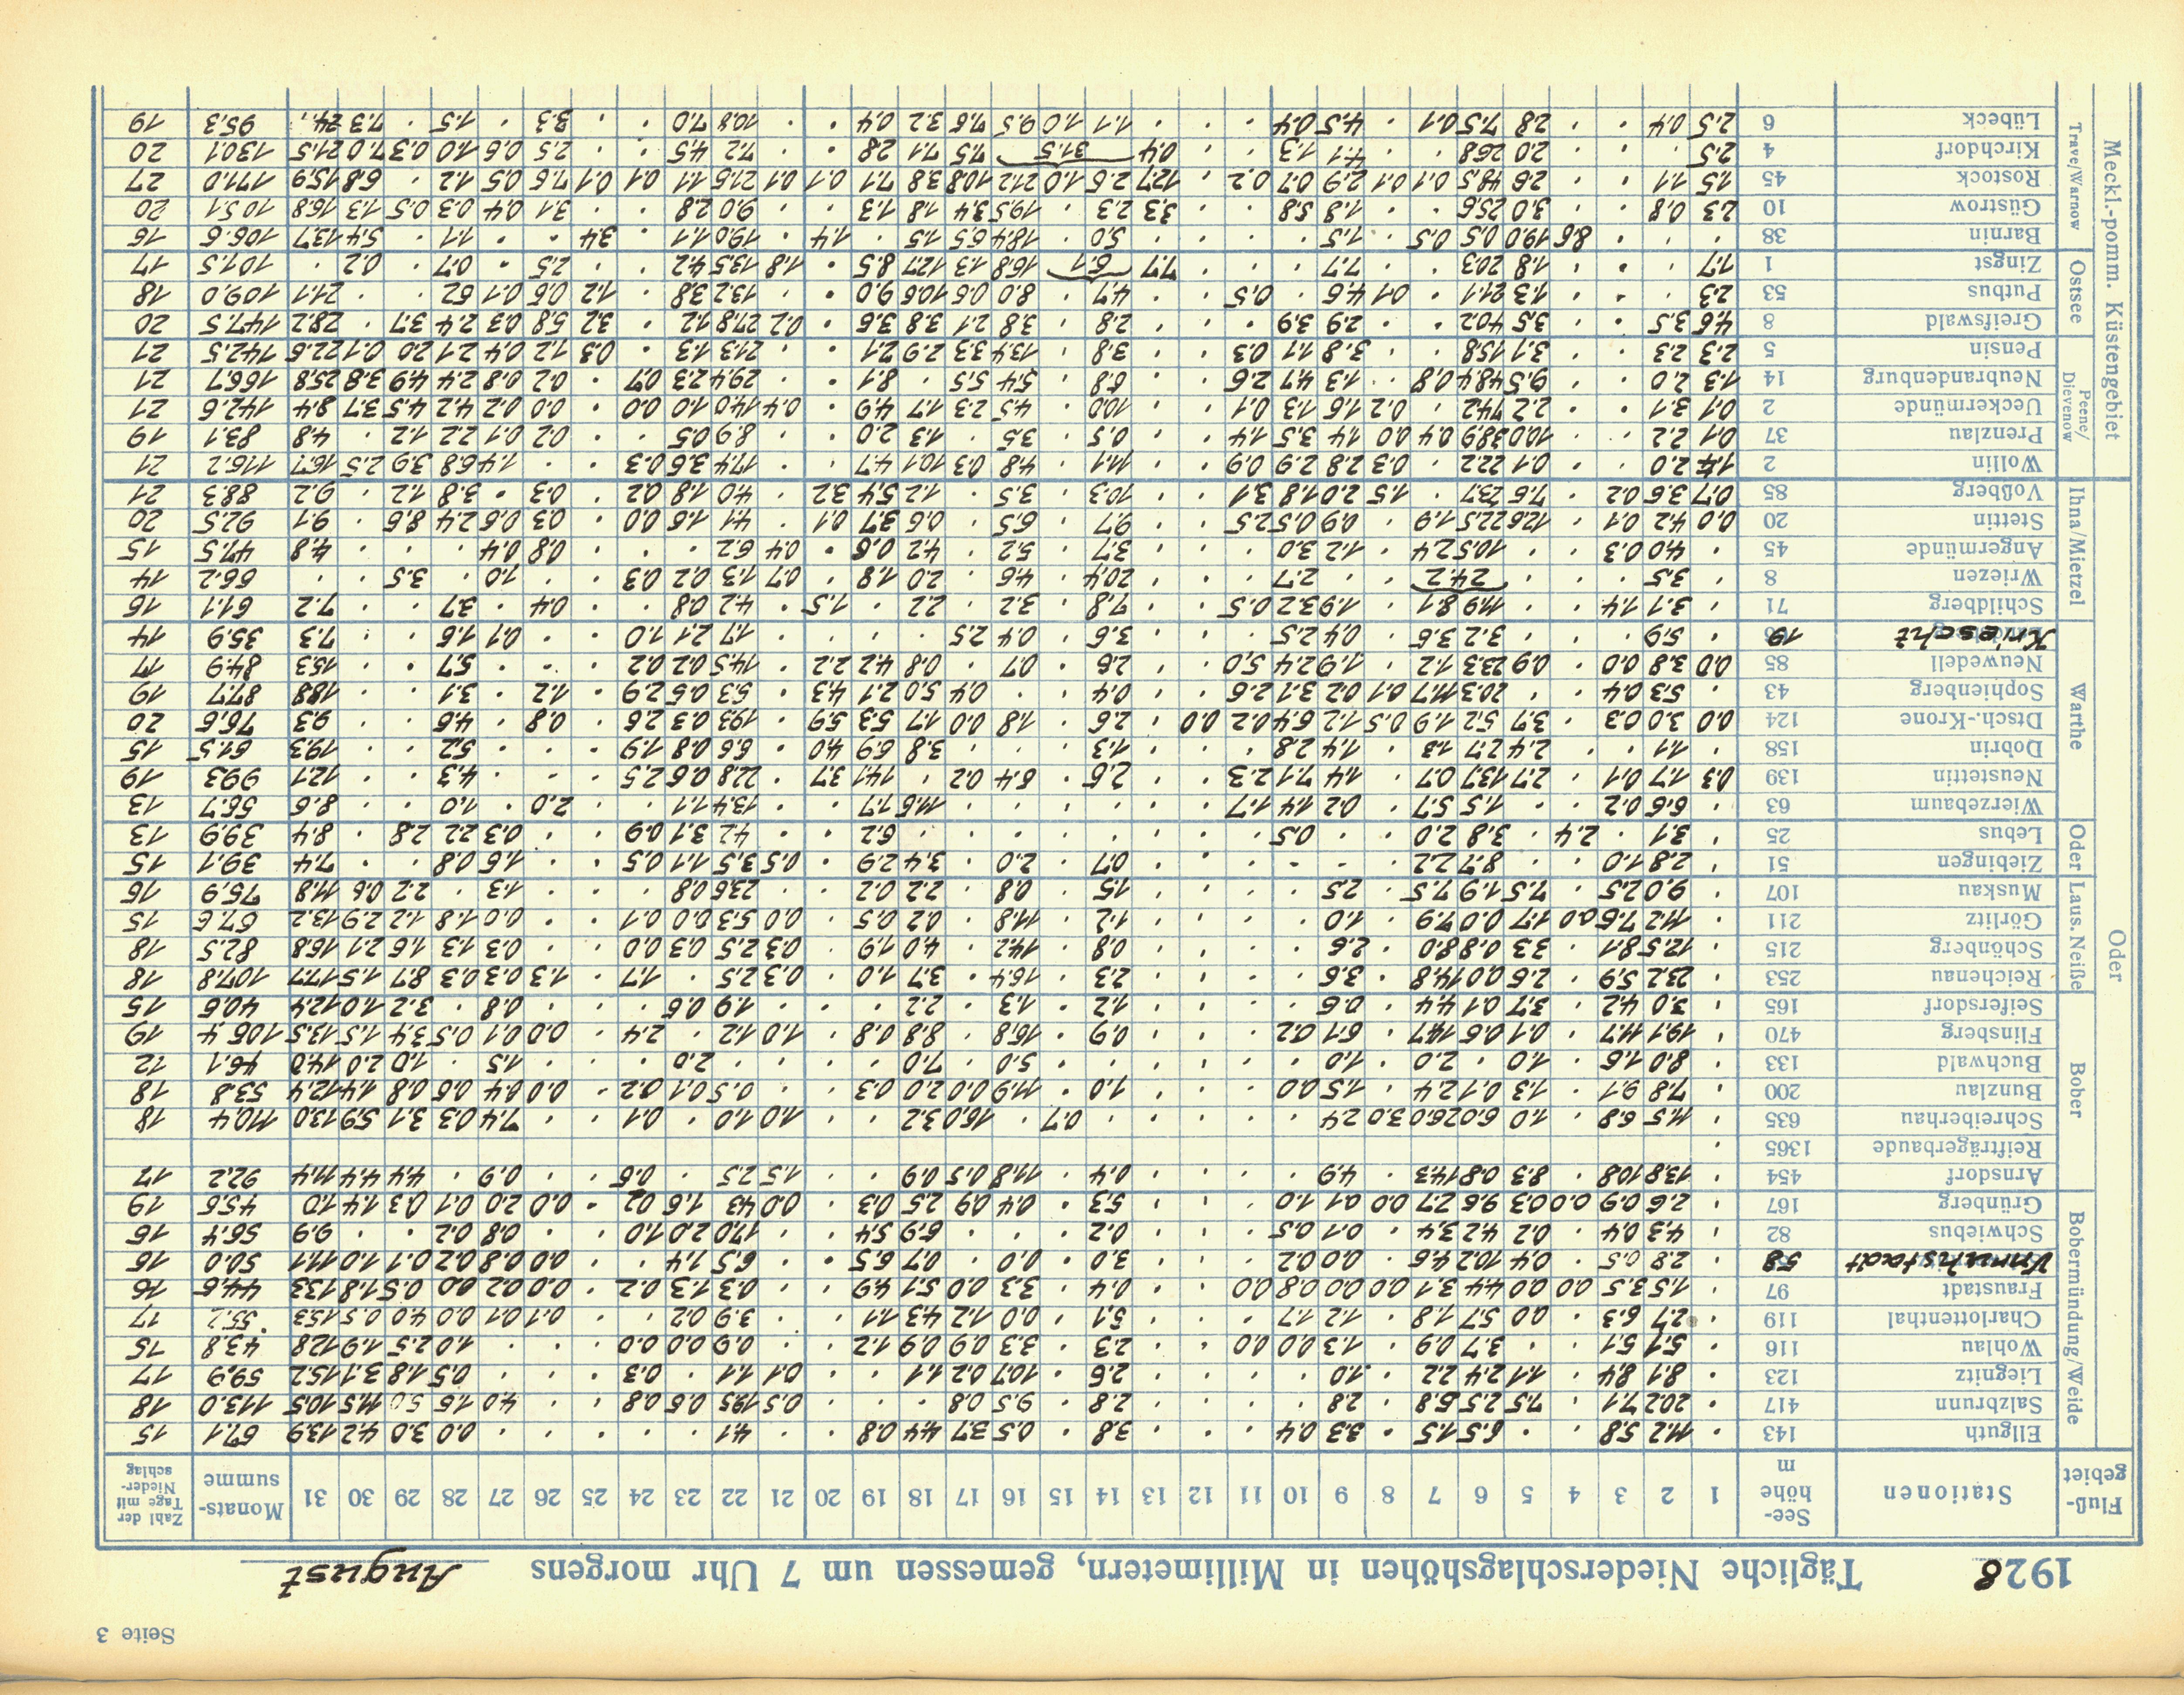 Seite 3
1928 Tägliche Niederschlagshöhen in Millimetern, gemessen um 7 Uhr morgens August
Fluß-gebiet Stationen See-höhe m 1 2 3 4 5 6 7 8 9 10 11 12 13 14 15 16 17 18 19 20 21 22 23 24 25 26 27 28 29 30 31 Monats-summe Zahl der Tage mit Nieder-schlag
Oder
Bobermündung/Weide
Ellguth 143 11.2 5.8 6.5 1.5 3.3 0.4 3.8 0.5 3.7 4.4 0.8 4.1 0.0 3.0 4.2 13.9 67.1 15
Salzbrunn 417 20.2 7.1 7.5 2.5 6.8 2.8 2.8 9.5 0.8 0.5 19.5 0.6 0.8 4.0 1.6 5.0 11.5 10.5 113.0 18
Liegnitz 123 8.1 8.4 1.1 2.4 2.2 1.0 2.6 10.7 0.2 1.1 0.1 1.1 0.3 0.5 1.8 3.1 15.2 59.9 17
Wohlau 116 5.1 5.1 3.7 0.9 1.3 0.0 0.0 2.3 3.3 0.9 0.9 1.2 0.9 0.0 0.0 1.0 2.5 1.9 12.8 43.8 15
Charlottenthal 119 2.7 6.3 0.0 5.7 1.8 1.2 1.7 5.1 0.0 1.2 4.3 1.1 3.9 0.2 0.1 0.1 0.0 4.0 0.5 15.3 55.2 17
Fraustadt 97 1.5 3.5 0.0 0.0 4.4 3.1 0.0 0.0 0.8 0.0 0.4 3.3 0.0 5.1 4.9 0.3 1.3 0.2 0.0 0.2 0.0 0.5 1.8 13.3 44.6 16
Unruhstadt 58 2.8 0.5 0.4 10.2 4.6 0.0 0.2 3.0 0.0 0.7 6.5 6.5 1.4 0.0 0.8 0.2 0.1 1.0 11.1 50.0 16
Schwiebus 82 4.3 0.4 0.2 4.2 3.4 0.1 0.5 0.2 6.9 5.4 17.0 2.0 1.0 0.8 0.2 9.9 56.4 16
Grünberg 167 2.6 0.9 0.0 0.3 9.6 2.7 0.0 0.1 1.0 5.3 0.4 0.9 2.5 0.3 0.0 4.3 1.6 0.2 0.0 2.0 0.1 0.3 1.4 1.0 45.6 19
Bober
Arnsdorf 454 13.8 10.8 8.3 0.8 14.3 4.9 0.4 11.8 0.5 0.9 1.5 2.5 0.6 0.9 4.4 4.4 11.4 92.2 17
Reifträgerbaude 1365
Schreiberhau 635 11.5 6.8 1.0 6.0 26.0 3.0 2.4 0.7 16.0 3.2 1.0 1.0 0.1 7.4 0.3 3.1 5.9 13.0 110.4 18
Bunzlau 200 7.8 9.1 1.3 0.1 2.4 1.5 0.0 1.0 11.9 0.0 2.0 0.3 0.5 0.1 0.2 0.0 0.4 0.6 0.8 1.4 12.4 53.8 18
Buchwald 133 8.0 1.6 1.0 2.0 1.0 5.0 7.0 2.0 1.5 1.0 2.0 14.0 46.1 12
Flinsberg 470 19.1 11.7 0.1 0.6 14.7 6.1 0.2 0.9 16.8 8.8 0.8 1.0 1.2 2.4 0.0 0.1 0.5 3.4 1.5 13.5 106.4 19
Seifersdorf 165 3.0 4.2 3.7 0.1 4.4 0.6 1.2 1.3 2.2 1.9 0.6 0.8 3.2 1.0 12.4 40.6 15
Laus. Neiße
Reichenau 253 23.2 5.9 2.6 0.0 14.8 3.6 2.3 16.4 3.7 1.0 0.3 2.5 1.7 1.3 0.3 0.3 8.7 1.5 17.7 107.8 18
Schönberg 215 12.5 8.1 3.3 0.8 8.0 2.6 0.8 14.2 4.0 1.9 0.3 2.5 0.3 0.0 0.3 1.3 1.6 2.1 16.8 82.5 18
Görlitz 211 11.2 7.6 0.0 1.7 0.0 7.9 1.0 1.2 11.8 0.2 0.5 0.0 5.3 0.0 0.1 0.0 1.8 1.2 2.9 13.2 67.6 15
Muskau 107 9.0 2.5 7.5 1.9 7.5 2.5 1.5 0.8 2.2 0.2 23.6 0.8 1.3 2.2 0.6 11.8 75.9 16
Oder
Ziebingen 51 2.8 1.0 8.7 2.2 0.7 2.0 3.4 2.9 0.5 3.5 1.1 0.5 1.6 0.8 7.4 39.1 15
Lebus 25 3.1 2.4 3.8 2.0 0.5 6.2 4.2 3.1 0.9 0.3 2.2 2.8 8.4 39.9 13
Warthe
Wierzebaum 63 6.6 0.2 1.5 5.7 0.2 1.4 1.7 11.6 1.7 13.4 1.1 2.0 1.0 8.6 56.7 13
Neustettin 139 0.3 1.7 0.1 2.7 13.7 0.7 1.4 7.1 2.3 2.6 6.4 0.2 14.1 3.7 22.8 0.6 2.5 4.3 12.1 99.3 19
Dobrin 158 1.1 2.4 2.7 1.3 1.4 2.8 1.3 3.8 6.9 4.0 6.6 0.8 1.9 5.2 19.3 61.5 15
Dtsch.-Krone 124 0.0 3.0 0.3 3.7 5.2 1.9 0.5 1.2 6.4 0.2 0.0 2.6 1.8 0.0 1.7 5.3 5.9 19.3 0.3 2.6 0.8 4.6 9.3 76.6 20
Sophienberg 43 5.3 0.4 20.3 11.7 0.1 0.2 3.1 2.6 0.4 0.4 5.0 2.1 4.3 5.3 0.6 2.9 1.2 3.1 18.8 87.7 19
Neuwedell 85 0.0 3.8 0.0 0.9 23.3 1.2 1.9 2.4 5.0 2.6 0.7 0.8 4.2 2.2 14.5 0.2 0.2 5.7 15.3 84.9 17
Kriescht 19 5.9 3.2 3.6 0.4 2.5 3.6 0.4 2.5 1.7 2.1 1.0 0.1 1.6 7.3 35.9 14
Ihna/Mietzel
Schildberg 71 3.1 1.4 11.9 8.1 1.9 3.2 0.5 7.8 3.2 2.2 1.5 4.2 0.8 0.4 3.7 7.2 61.1 16
Wriezen 8 3.5 24.2 2.7 20.4 4.6 2.0 1.8 0.7 1.3 0.2 0.3 1.0 3.5 66.2 14
Angermünde 45 4.0 0.3 10.5 2.4 1.2 3.0 3.7 5.2 4.2 0.6 0.4 6.2 0.8 0.4 4.8 47.5 15
Stettin 20 0.0 4.2 0.1 12.6 22.5 1.9 0.9 0.5 2.5 9.7 6.5 0.6 3.7 0.1 4.1 1.6 0.0 0.3 0.6 2.4 8.6 9.1 92.5 20
Voßberg 85 0.7 3.6 0.2 7.6 23.7 1.5 2.0 1.8 3.1 10.3 3.5 1.2 5.4 3.2 4.0 1.8 0.2 0.3 3.8 1.2 9.2 88.3 21
Meckl.-pomm. Küstengebiet
Peene/Dievenow
Wollin 2 1.4 2.0 0.1 22.2 0.3 2.8 2.9 0.9 11.1 4.8 0.3 10.1 4.7 17.4 3.6 0.3 1.4 6.8 3.9 2.5 16.7 116.2 21
Prenzlau 37 0.1 2.2 10.0 38.9 0.4 0.0 1.4 3.5 1.4 0.5 3.5 1.3 2.0 8.9 0.5 0.2 0.1 2.2 1.2 4.8 83.1 19
Ueckermünde 2 0.1 3.1 2.2 74.2 0.2 1.6 1.3 0.1 10.0 4.5 2.3 1.7 4.9 0.4 14.0 1.0 0.0 0.0 0.2 4.2 4.5 3.7 8.4 142.6 21
Neubrandenburg 14 1.3 2.0 9.5 48.4 0.8 1.3 4.7 2.6 6.8 5.4 5.5 8.1 29.4 2.3 0.7 0.2 0.8 2.4 4.9 3.8 25.8 166.7 21
Pensin 5 2.3 2.3 3.1 15.8 3.8 1.1 0.3 3.8 13.4 3.3 2.9 2.1 21.3 1.3 0.3 1.2 0.4 2.1 2.0 0.1 22.6 142.5 21
Ostsee
Greifswald 8 4.6 3.5 3.5 40.2 2.9 3.9 2.8 3.8 2.1 3.8 3.6 0.2 27.8 1.2 3.2 5.8 0.3 2.4 3.7 28.2 147.5 20
Putbus 53 2.3 1.3 21.1 0.1 4.6 0.5 4.7 8.0 0.6 10.6 9.0 13.2 3.8 1.2 0.6 0.1 6.2 21.1 109.0 18
Zingst 1 1.7 1.8 20.3 7.7 7.7 6.1 16.8 1.3 12.7 8.5 1.8 13.5 4.2 2.5 0.7 0.2 101.5 17
Trave/Warnow
Barnin 38 8.6 19.0 0.5 0.5 1.5 5.0 18.4 6.5 1.5 1.4 19.0 1.1 3.4 1.1 5.4 13.7 106.6 16
Güstrow 10 2.3 0.8 3.0 25.6 1.8 5.8 3.3 2.3 19.5 3.4 1.8 1.3 9.0 2.8 3.1 0.4 0.3 0.5 1.3 16.8 105.1 20
Rostock 45 1.5 1.1 2.6 48.5 0.1 0.1 2.9 0.7 0.2 12.7 2.6 1.0 21.2 10.8 3.8 7.1 0.1 0.1 21.5 1.1 0.1 0.1 7.6 0.5 1.2 6.8 15.9 171.0 27
Kirchdorf 4 2.5 2.0 26.8 4.1 1.3 0.4 31.5 7.5 7.1 2.8 7.2 4.5 2.5 0.6 1.0 0.3 7.0 21.5 130.1 20
Lübeck 6 2.5 0.4 2.8 7.5 0.1 4.5 0.4 1.1 1.0 9.5 7.6 3.2 0.4 10.8 7.0 3.3 1.5 7.3 95.3 19